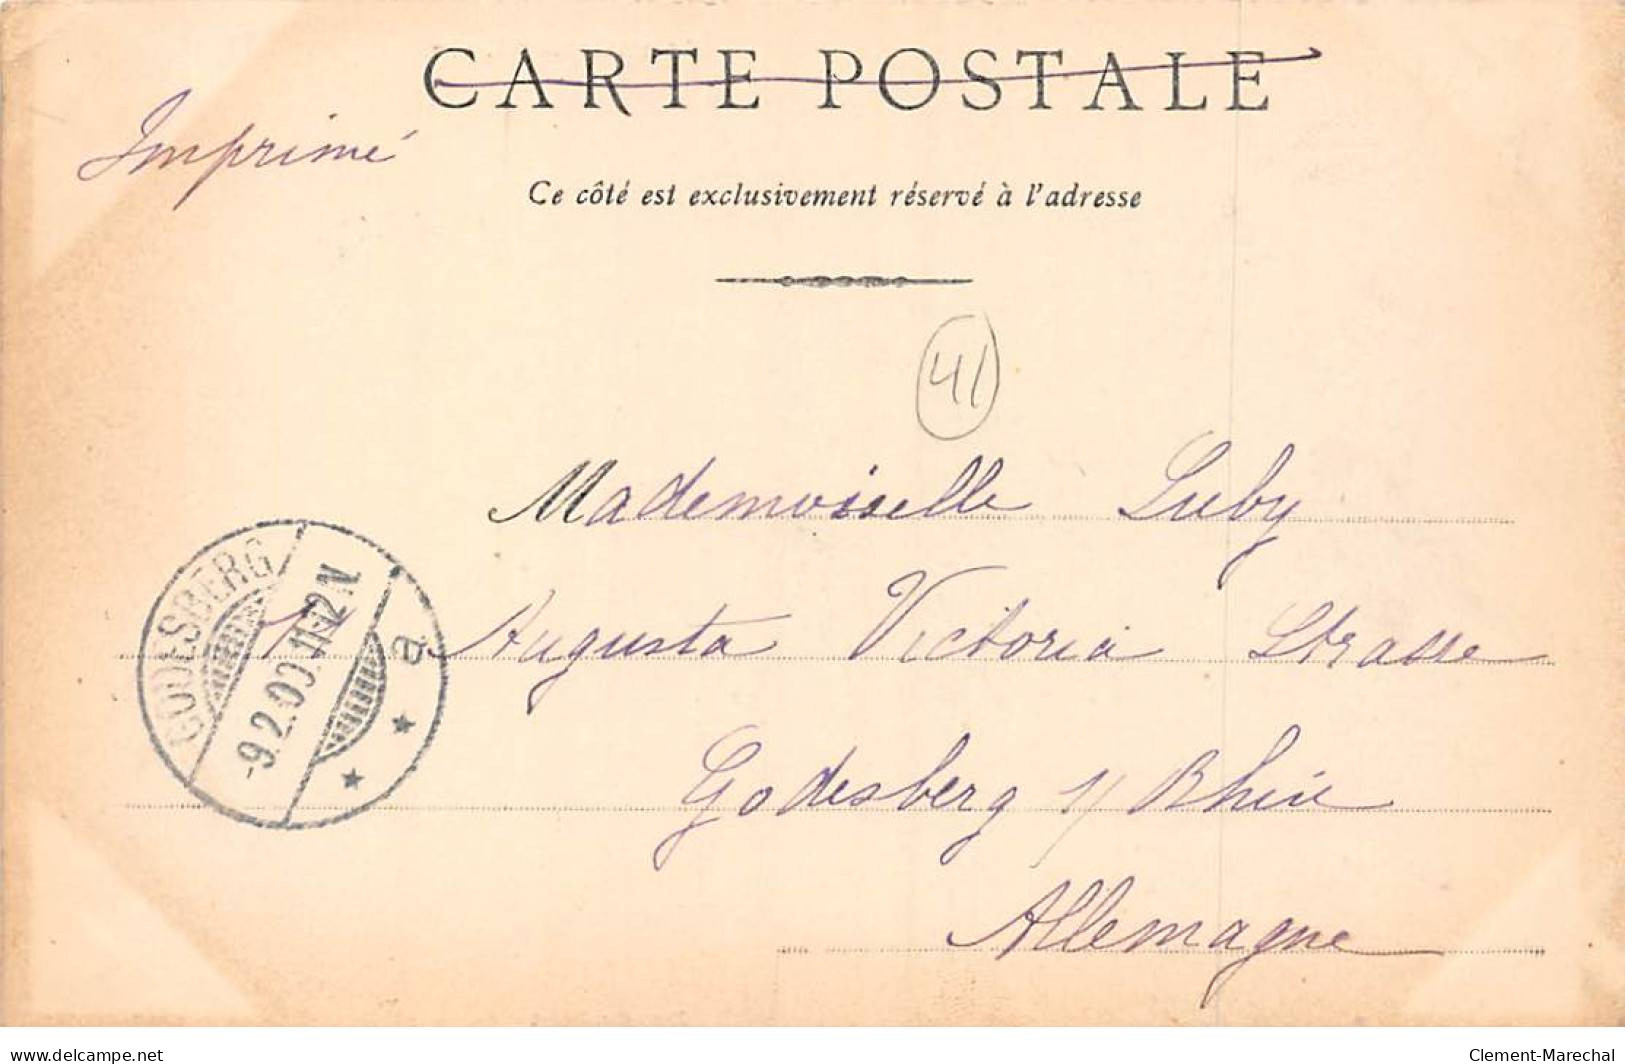 CARTE POSTALE
Imprimé
Ce côté est exclusivement réservé à l'adresse
41
Mademoiselle Luby
1 Augusta Victoria Strasse
Godesberg s/ Rhin
Allemagne
GODESBERG
-9.2.00.11-12N
a
www.delcampe.net
Clement-Marechal